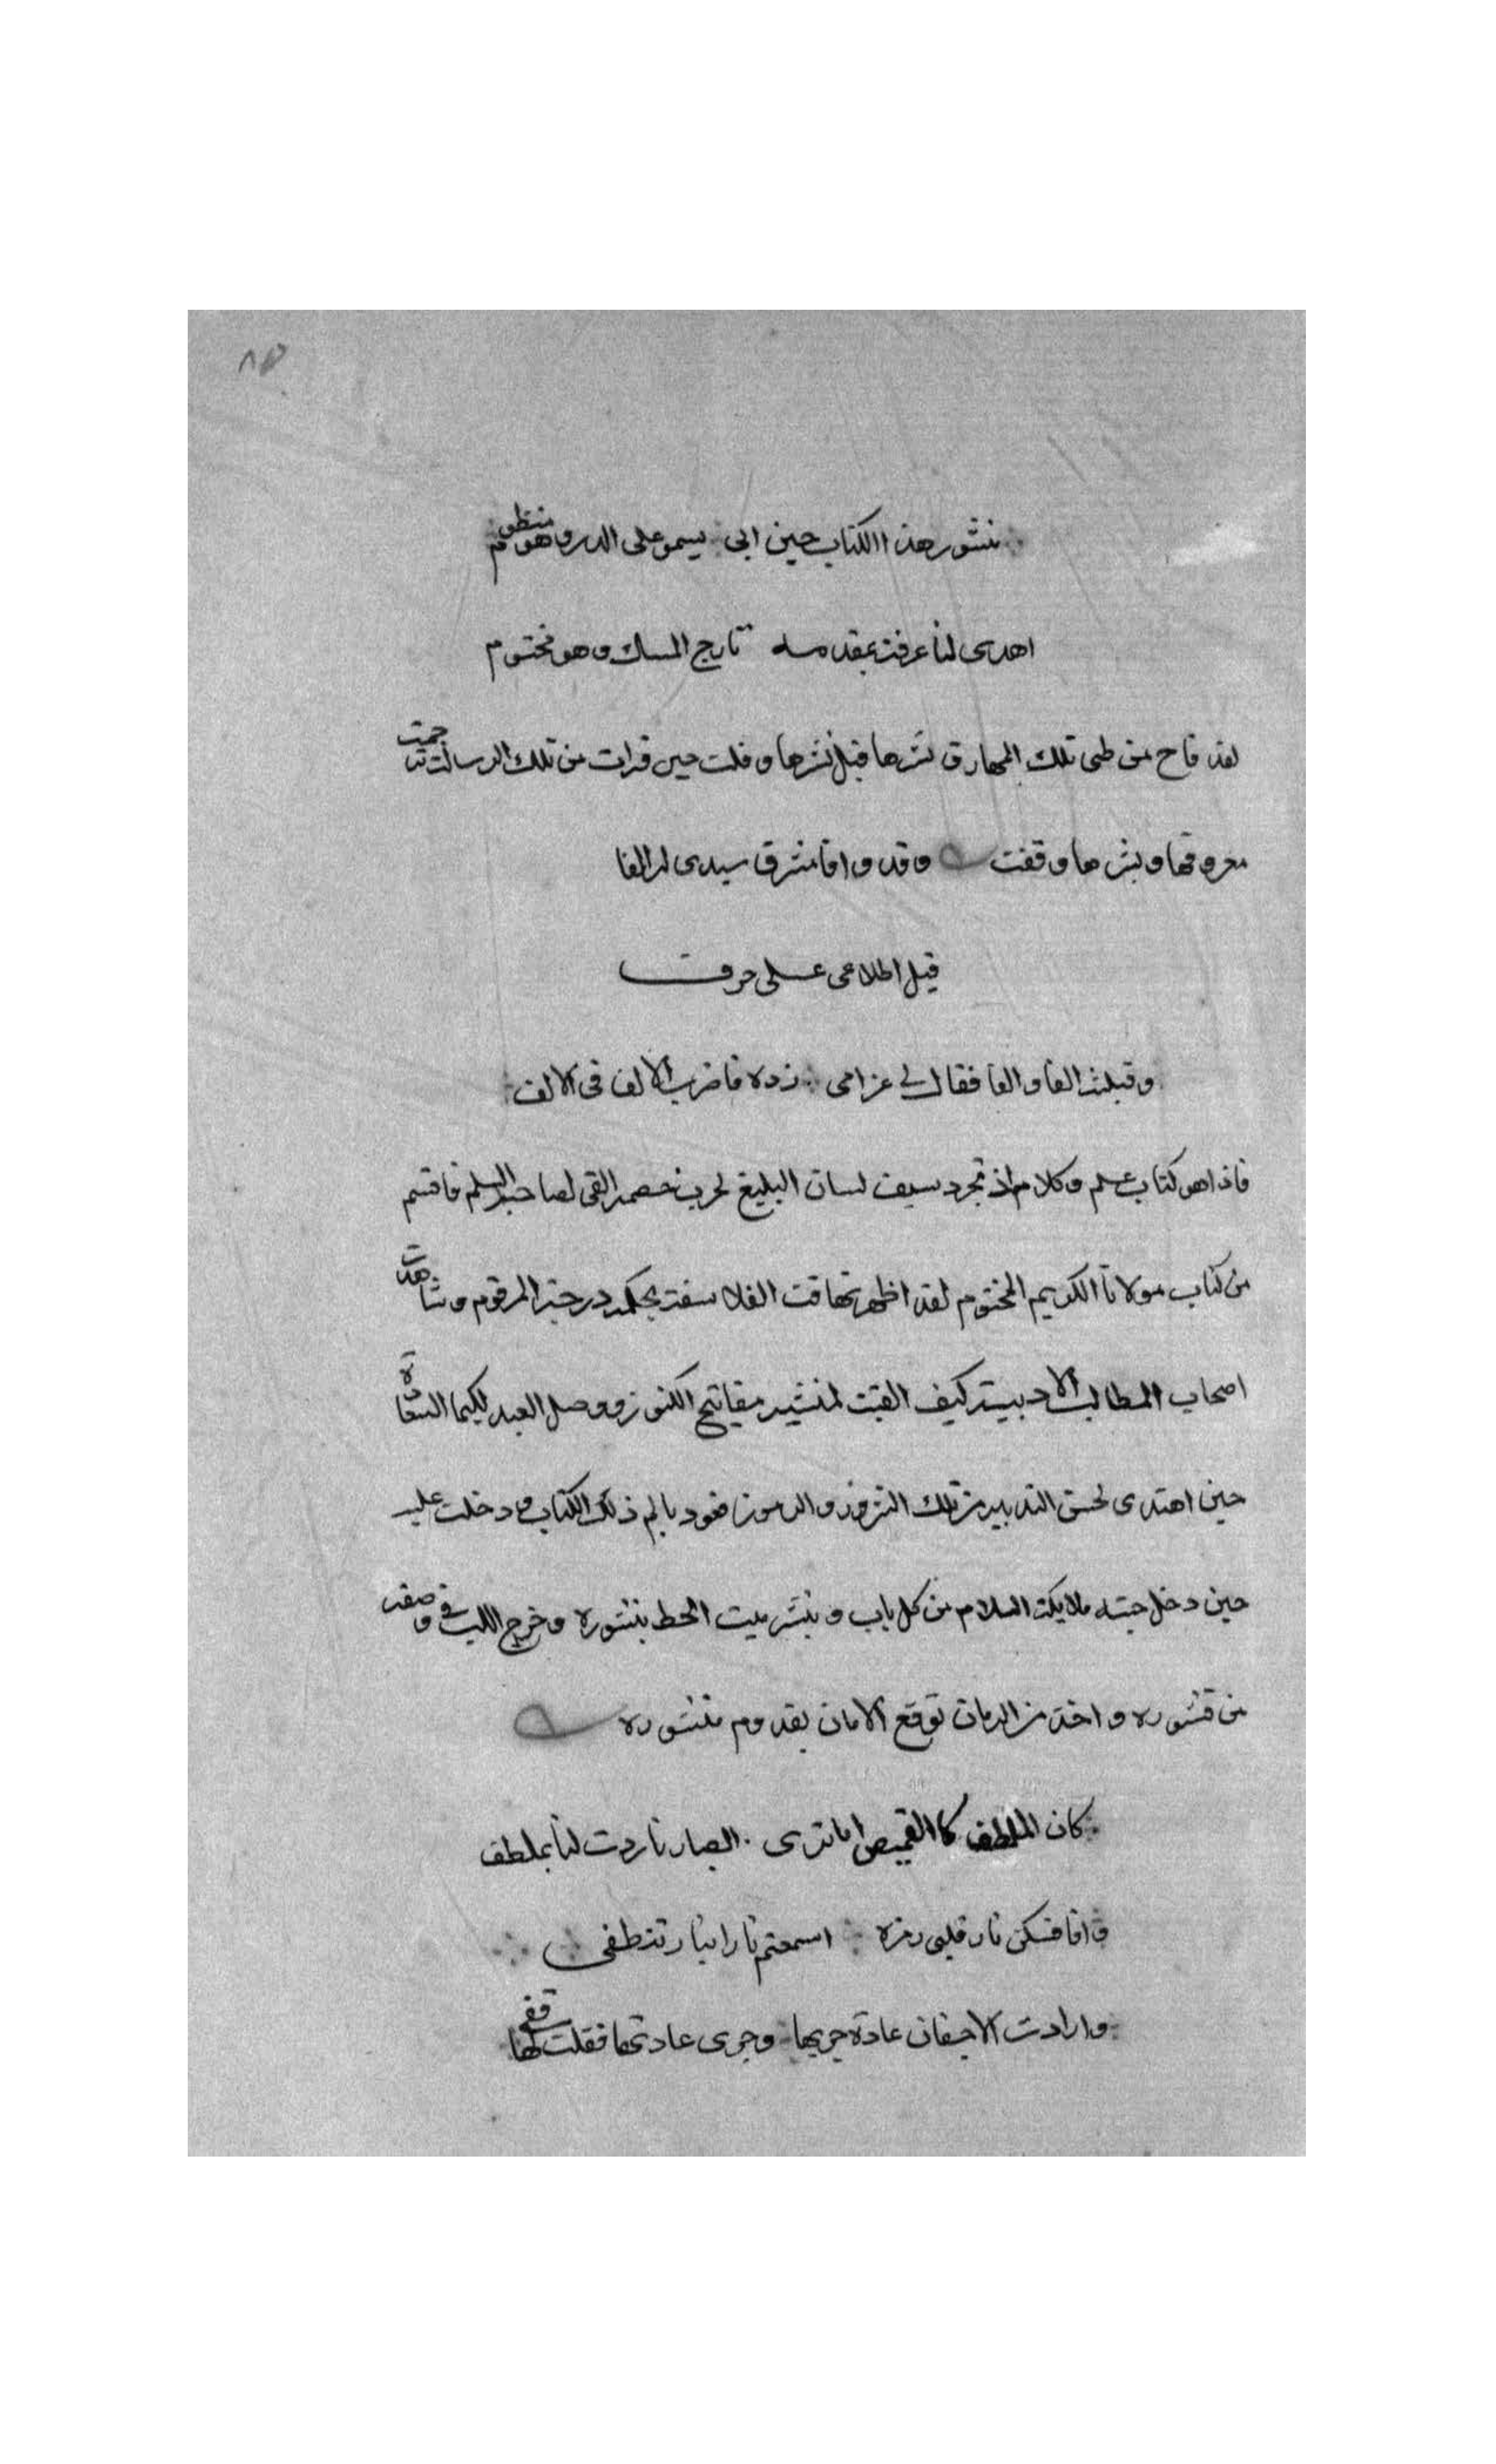 منثور هذا الكتاب حين اتى يسمو على الدر وهو منظوم
اهدى لنا عرفت بمقدمه تارج المسك وهو مختوم
لقد فاح من طى تلك المهارق نشرها قبل نشرها وقلت حين قرات من تلك الرسالة ترجمت
معروفها وبشرها وقفت وقد وافا مشرف سيدى لى الفا
قبل اطلاعى على حرف
وقبلته الفا والفا فقال لى غرامى زده فاضرب الالف فى الالف
فاذا هو كتاب علم وكلام اذ تجرد سيف لسان البليغ لحرب خصمه القى لصاحبه السلم فاقسم
من كتاب مولانا الكريم المختوم لقد اظهر تهافت الفلاسفة بحكمة درجته المرقوم وشاهدت
اصحاب المطالب الادبية كيف القيت لمنشيه مفاتيح الكنوز ووصل العبد لكيما السعادة
حين اهتدى لحسن التدبير من تلك والرموز فعوذ بالم ذلك الكتاب ودخلت عليه
حين دخل جنته ملايكة السلام من كل باب ونشر ميت الحظ بمنشوره وخرج اللب فى وصفه
من قشوره واخذ من الزمان توقع الامان بقدوم منشوره
كان الملطف كالقميص اما ترى ابصارنا ردت لنا بملطف
وافا فسكن نار قلبى رمزه اسمعتم نارا بنار تنطفى
وارادت الاجفان عادة جريها وجرى عادتها فقلت لها قفى